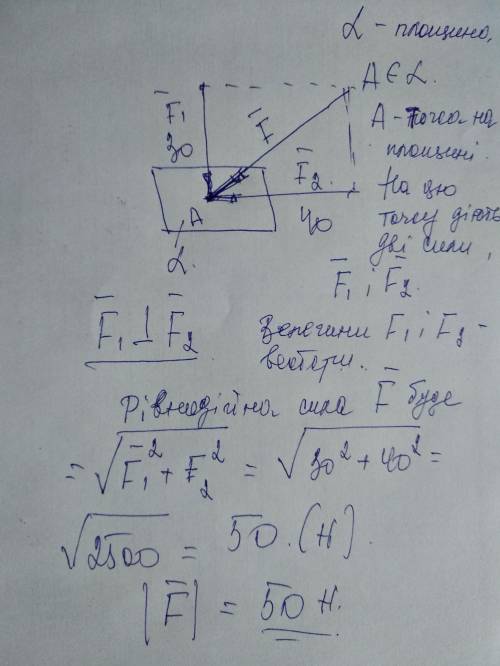 α - площина,
A ∈ α.
A - точка на
площині.
На цю
точку діють
дві сили,
F̅₁ і F̅₂.
F̅₁
30
F̅
F̅₂
40
A
α.
F̅₁ ⊥ F̅₂
Величини F₁ і F₂ -
вектори.
Рівнодійна сила F̅ буде
= √(F̅₁² + F₂²) = √(30² + 40²) =
√2500 = 50. (Н).
|F̅| = 50 Н.